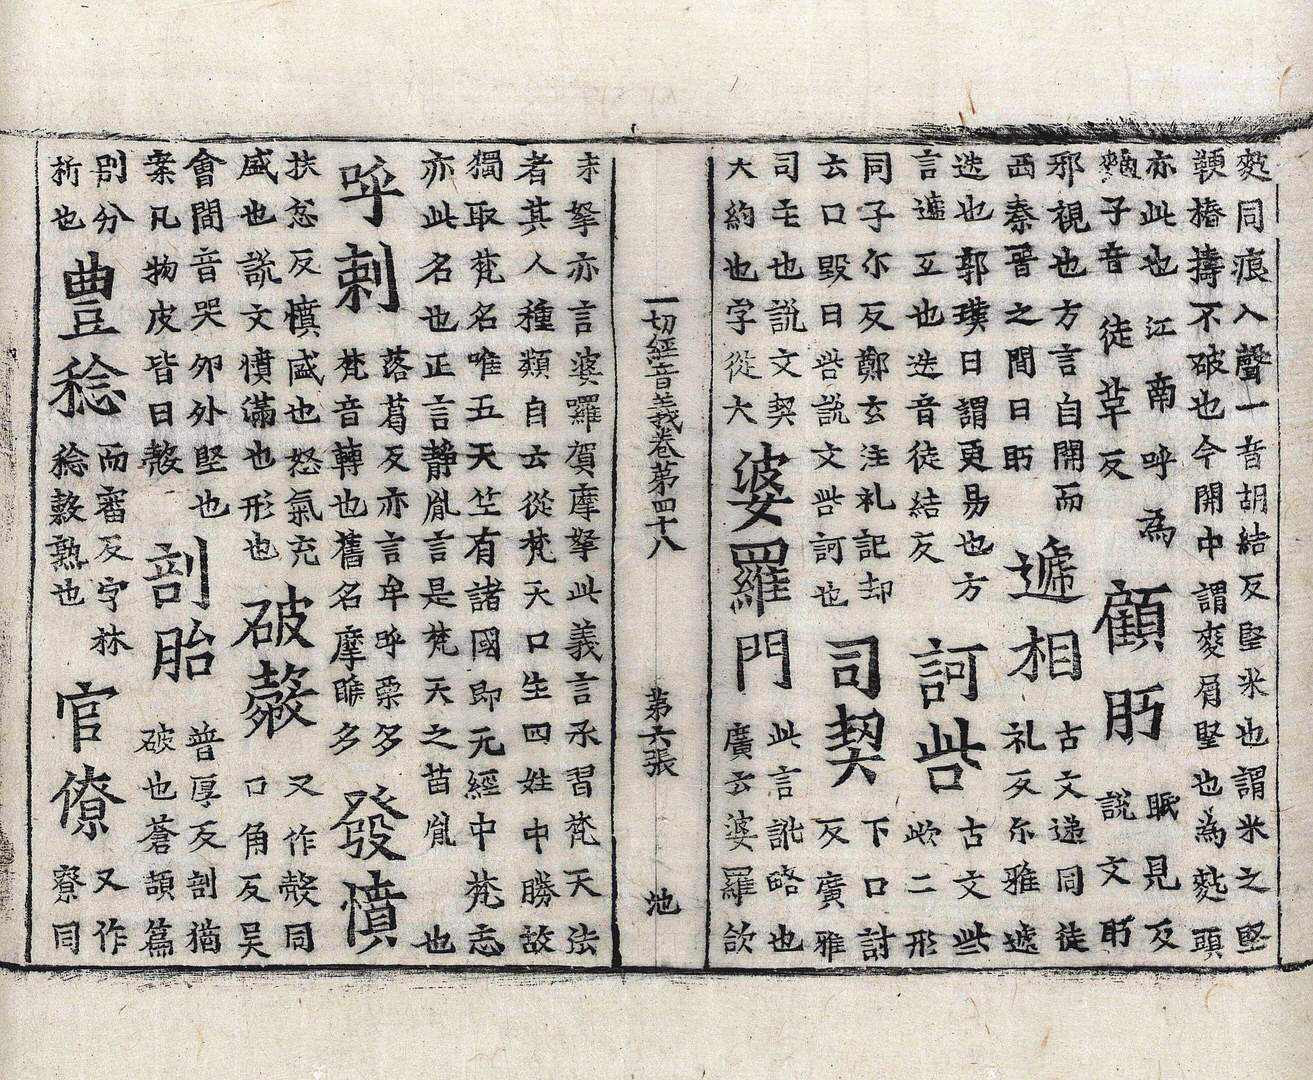 麧同痕入聲一音胡結反堅米也謂米之堅
鞕椿擣不破也今關中謂麥屑堅也為麧頭
亦此也江南呼為
子音徒革反
顧眄
眠見反
說文眄
邪視也方言自關而
西秦晉之間曰眄
遞相
古文递同徒
礼反尒雅遞
迭也郭璞曰謂更易也方
言遞互也迭音徒結反
訶呰
古文些
欪二形
同子尒反鄭玄注礼記却
云口毀曰呰說文呰訶也
司契
下口討
反廣雅
司主也說文契
大約也字從大
婆羅門
此言訛略也
廣云婆羅欱
一切經音義卷第四十八 第六張 池
末拏亦言婆囉賀摩拏此義言承習梵天法
者其人種類自云從梵天口生四姓中勝故
獨取梵名唯五天竺有諸國即无經中梵志
亦此名也正言靜胤言是梵天之苗胤也
呼剌
落葛反亦言牟呼栗多
梵音轉也舊名摩睺多
發憤
扶忿反憤盛也怒氣充
盛也說文憤滿也形也
破㲉
又作殼同
口角反吴
會間音哭卵外堅也
案凡物皮皆曰㲉
剖胎
普厚反剖猶
破也蒼頡篇
別分
析也
豊稔
而審反字林
稔穀熟也
官僚
又作
寮同